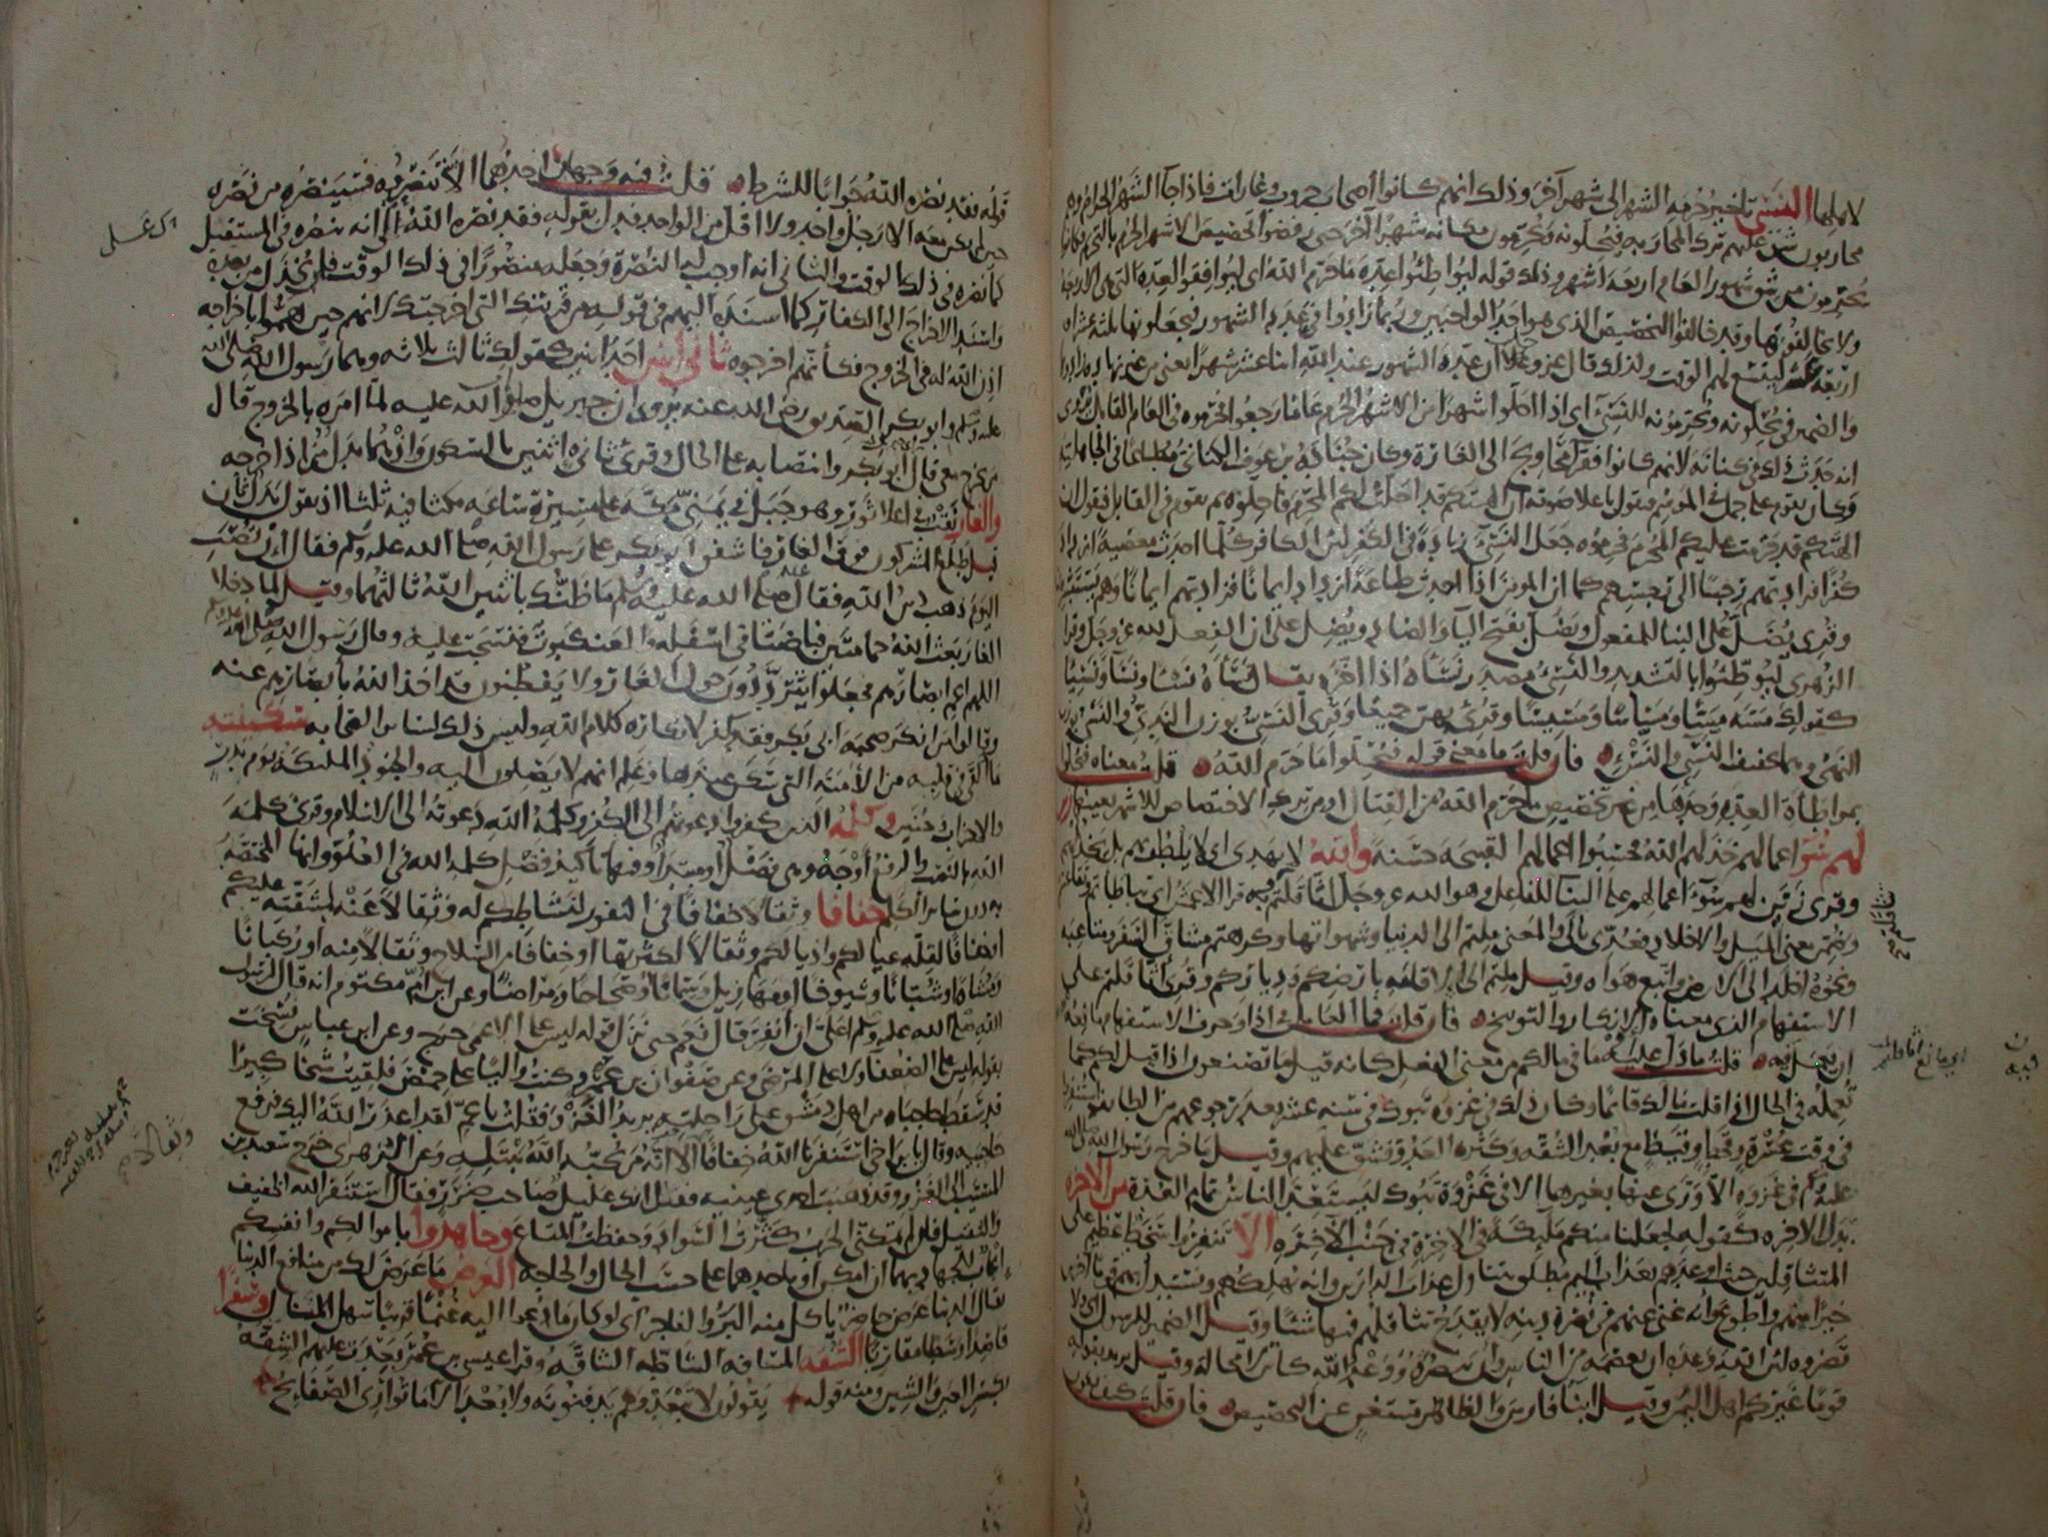 لاهلها النسي تاخير حرمة الشهر الى شهر آخر وذلك انهم كانوا اصحاب حروب وغارات فاذا جا الشهر الحرام وهم
محاربون شق عليهم ترك المحاربة فيحلونه ويحرمون مكانه شهرا آخر حتى رفضوا تخصيص الاشهر الحرم بالتحريم فكانوا
يحرمون من شق شهور العام اربعة اشهر وذلك قوله ليواطئوا عدة ما حرم الله اى ليوافقوا العدة التى هى الاربعة
ولا يخالفونها وقد خالفوا التخصيص الذى هو احد الواجبين وربما زادوا فى عدد الشهور فيجعلونها ثلثة عشر او
اربعة عشر ليتسع لهم الوقت ولذلك قال عز وعلا ان عدة الشهور عند الله اثنا عشر شهرا يعنى من غير زيادة زادوها
والضمير فى يحلونه ويحرمونه للنسئ اى اذا احلوا شهرا من الاشهر الحرم عاما رجعوا فحرموه فى العام القابل يروى
انه حدث ذلك فى كنانة لانهم كانوا فقرا محاويج الى الغارة وكان جنادة بن عوف الكنانى مطاعا فى الجاهلية
وكان يقوم على جمل فى الموسم فيقول باعلا صوته ان آلهتكم قد احلت لكم المحرم فاحلوه ثم يقوم فى القابل فيقول ان
آلهتكم قد حرمت عليكم المحرم فحرموه جعل النسئ زيادة فى الكفر لان الكافر كلما احدث معصية ازداد
كفرا فزادتهم رجسا الى رجسهم كما ان المومن اذا احدث طاعة ازداد ايمانا فزادتهم ايمانا وهم يستبشرون
وقرى يضل على البنا للمفعول ويضل بفتح اليا والضاد ويضل على ان الفعل لله عز وجل وقرا
الزهرى ليوطئوا بالتشديد والنسئ مصدر نسأه اذا اخره يقال نسأه نسئا ونسأ ونسيئا
كقولك مسه مسا ومساسا ومسيسا وقرئ بهن جميعا وقرى النسى بوزن الندى والنسى بوزن
النهى وهما تخفيف النسئ والنسء فان قلت ما معنى قوله فيحلوا ما حرم الله قلت معناه فيحلوا
بمواطاة العدة وحدها من غير تخصيص ما حرم الله من القتال او من ترك الاختصاص للاشهر بعينها زين
لهم سوء اعمالهم خذلهم الله فحسبوا اعمالهم القبيحة حسنة والله لا يهدى اى لا يلطف بهم بل يخذلهم
وقرى زين لهم سوء اعمالهم على البنا للفاعل وهو الله عز وجل اثاقلتم وبه قرا الاعمش اى تباطاتم وتقاعستم
وضمن معنى الميل والاخلاد فعدى بالى والمعنى ملتم الى الدنيا وشهواتها وكرهتم مشاق السفر ومتاعبه
ونحوه اخلد الى الارض واتبع هواه وقيل ملتم الى الاقامة بارضكم ودياركم وقرى اثاقلتم على
الاستفهام الذى معناه الانكار والتوبيخ فان قلت فما العامل فى اذا وحرف الاستفهام مانعة
ان يعمل فيه قلت ما دل عليه قوله او ما فى مالكم من معنى الفعل كانه قيل ما تصنعون اذا قيل لكم كما
تعمله فى الحال اذا قلت مالك قائما وكان ذلك فى غزوة تبوك فى سنة عشر بعد رجوعهم من الطايف استنفروا
فى وقت عسرة وقحط وقيظ مع بعد الشقة وكثرة العدو فشق عليهم وقيل ما خرج رسول الله صلى الله
عليه وسلم فى غزوة الا ورى عنها بغيرها الا فى غزوة تبوك ليستعد الناس تمام العدة من الاخرة
بدل الاخرة كقوله لجعلنا منكم مليكة فى الاخرة فى جنب الاخرة الا تنفروا سخط عظيم على
المتثاقلين حيث اوعدهم بعذاب اليم مطلق يتناول عذاب الدارين وانه يهلكهم ويستبدل بهم قوما آخرين
خيرا منهم واطوع وانه غنى عنهم فى نصرة دينه لا يقدح تثاقلهم فيها شيئا وقيل الضمير للرسول اى ولا
تضروه لان الله وعده ان يعصمه من الناس وان ينصره ووعد الله كاين لا محالة وقيل يريد بقوله
قوما غيركم اهل اليمن وقيل ابنا فارس والظاهر مستغن عن التخصيص فان قلت كيف يكون
تثاقلتم صح
اى مانع اثاقلتم
قوله فقد نصره الله جوابا للشرط قلت فيه وجهان احدهما الا تنصروه فسينصره من نصره
حين لم يكن معه الا رجل واحد ولا اقل من الواحد فدل بقوله فقد نصره الله الى انه ينصره فى المستقبل
كما نصره فى ذلك الوقت والثانى انه اوجب له النصرة وجعله منصورا فى ذلك الوقت فلن يخذل من بعده
واسند الاخراج الى الكفار كما اسنده اليهم فى قوله من قريتك التى اخرجتك لانهم حين هموا باخراجه
اذن الله له فى الخروج فكأنهم اخرجوه ثانى اثنين احد اثنين كقولك ثالث ثلاثة وهما رسول الله صلى الله
عليه وسلم وابو بكر الصديق رضى الله عنه يروى ان جبريل صلوات الله عليه لما امره بالخروج قال
من يخرج معى قال ابو بكر وانتصابه على الحال وقرئ ثانى اثنين بالسكون واذ هما بدل من اذ اخرجه
والغار ثقب فى اعلا ثور وهو جبل فى يمنى مكة على مسيرة ساعة مكثا فيه ثلثا اذ يقول بدل ثان
قيل طلع المشركون فوق الغار فاشفق ابو بكر على رسول الله صلى الله عليه وسلم فقال ان تصب
اليوم ذهب دين الله فقال صلى الله عليه وسلم ما ظنك باثنين الله ثالثهما وقيل لما دخلا
الغار بعث الله حمامتين فباضتا فى اسفله والعنكبوت فنسجت عليه وقال رسول الله صلى الله عليه وسلم
اللهم اعم ابصارهم فجعلوا يترددون حول الغار ولا يفطنون قد اخذ الله بابصارهم عنه
وقالوا من انكر صحبة ابى بكر فقد كفر لانكاره كلام الله وليس ذلك لساير الصحابة سكينته
ما القى فى قلبه من الامنة التى سكن عندها وعلم انهم لا يصلون اليه والجنود المليكة يوم بدر
والاحزاب وحنين وكلمة الذين كفروا دعوتهم الى الكفر وكلمة الله دعوته الى الاسلام وقرئ كلمة
الله بالنصب والرفع اوجه وهى فصل او مبتدأ وفيها تأكيد فضل كلمة الله فى العلو وانها المختصة
به دون ساير الكلم خفافا وثقالا خفافا فى النفور لنشاطكم له وثقالا عنه لمشقته عليكم
او خفافا لقلة عيالكم واذيالكم وثقالا لكثرتها او خفافا من السلاح وثقالا منه او ركبانا
ومشاة او شبانا وشيوخا او مهازيل وسمانا او صحاحا ومراضا وعن ابن ام مكتوم انه قال لرسول
الله صلى الله عليه وسلم اعلى ان انفر قال نعم حتى نزل قوله ليس على الاعمى حرج وعن ابن عباس نسخت
بقوله ليس على الضعفا ولا على المرضى وعن صفوان بن عمرو كنت واليا على حمص فلقيت شيخا كبيرا
قد سقط حاجباه من اهل دمشق على راحلته يريد الغزو فقلت يا عم لقد اعذر الله اليك فرفع
حاجبيه وقال يا ابن اخى استنفرنا الله خفافا وثقالا الا انه من يحبه الله يبتله وعن الزهرى خرج سعيد بن
المسيب الى الغزو وقد ذهبت احدى عينيه فقيل انك عليل صاحب ضرر فقال استنفر الله الخفيف
والثقيل فان لم يمكنى الحرب كثرت السواد وحفظت المتاع وجاهدوا باموالكم وانفسكم
ايجاب للجهاد بهما ان امكن او باحدهما على حسب الحال والحاجة العرض ما عرض لك من منافع الدنيا
يقال الدنيا عرض حاضر ياكل منه البر والفاجر اى لو كان ما دعوا اليه غنما قريبا سهل المنال وسفرا
قاصدا وسطا مقاربا الشقة المسافة الشاطة الشاقة وقرا عيسى بن عمر بعدت عليهم الشقة
بكسر العين والشين ومنه قوله يقولون لا تبعد وهم يدفنونه ولا بعد الا ما توارى الصفايح
وثقالا صح